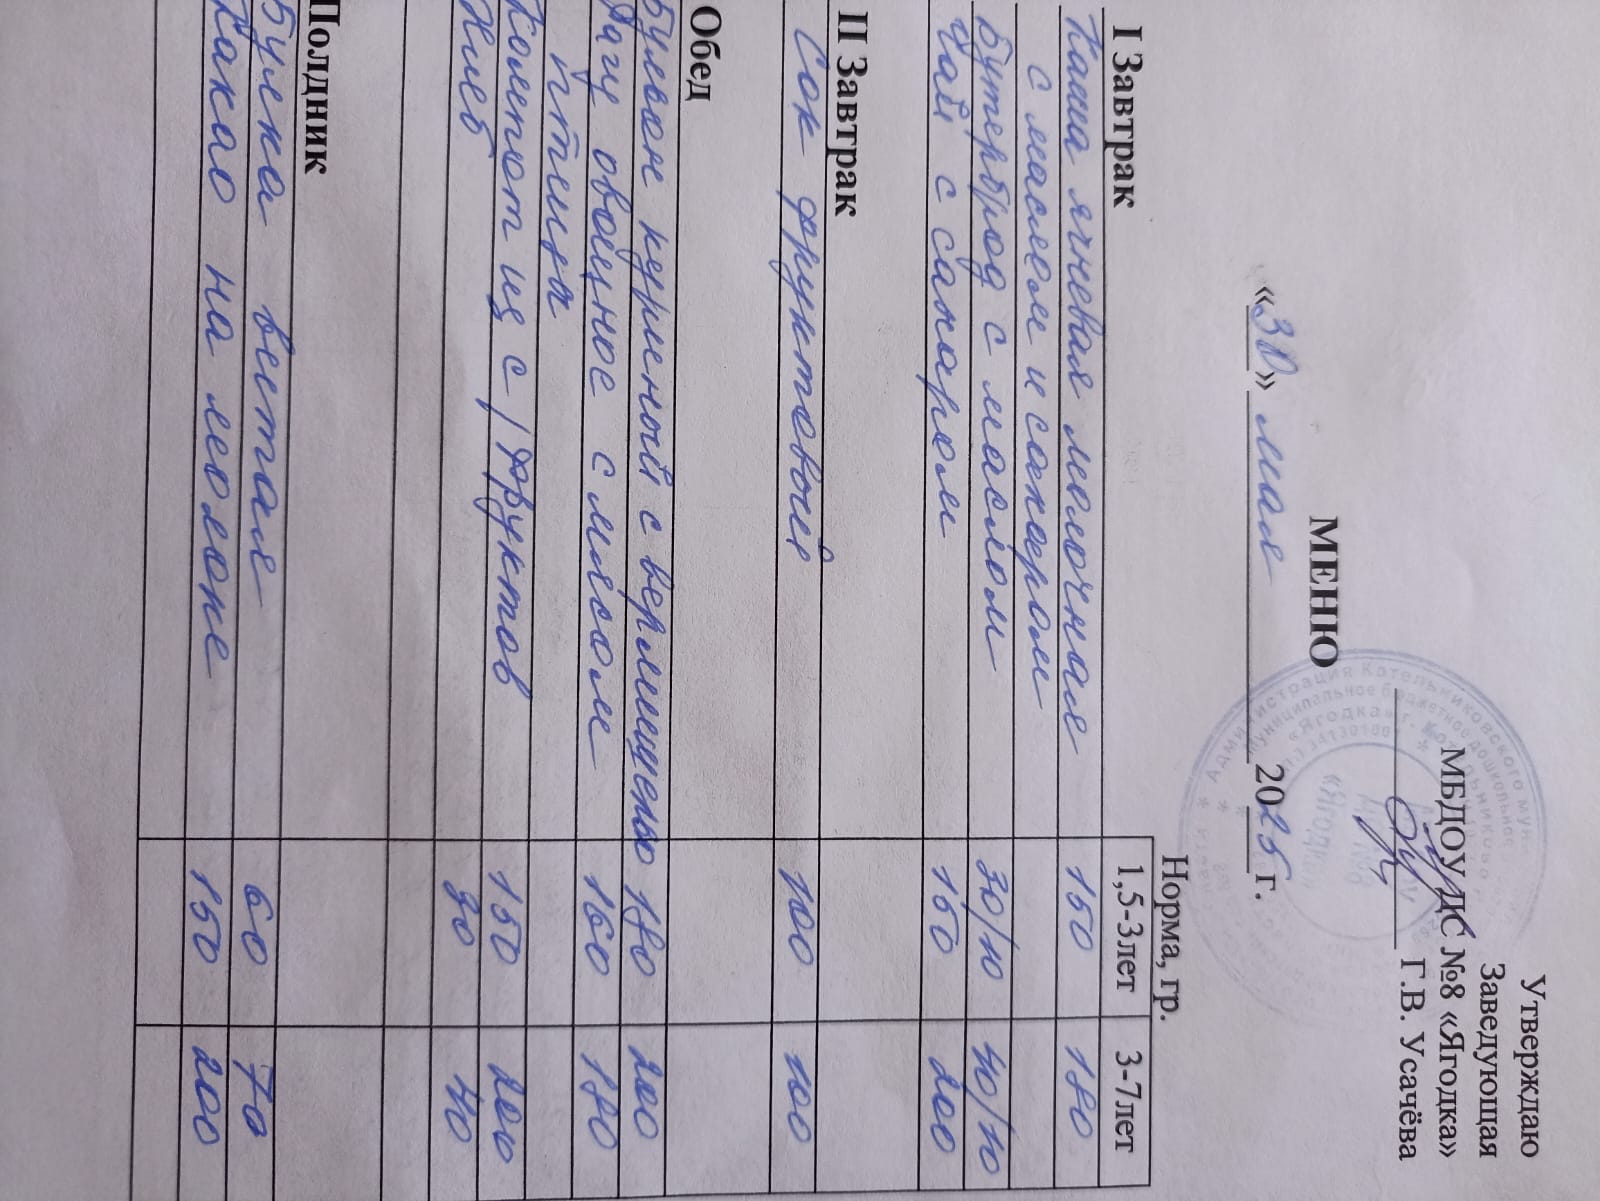 Утверждаю
Заведующая
МБДОУ ДС №8 «Ягодка»
Г.В. Усачёва
МЕНЮ
«30» мая 2025 г.
Норма, гр.
I Завтрак 1,5-3лет 3-7лет
Каша ячневая молочная 150 180
с маслом и сахаром
Бутерброд с маслом 30/10 40/10
Чай с сахаром 150 200
II Завтрак
Сок фруктовый 100 100
Обед
Бульон куриный с вермишелью 180 200
Рагу овощное с мясом 160 180
птицы
Компот из с/фруктов 150 200
Хлеб 30 40
Полдник
Булка ветая 60 70
Какао на молоке 150 200